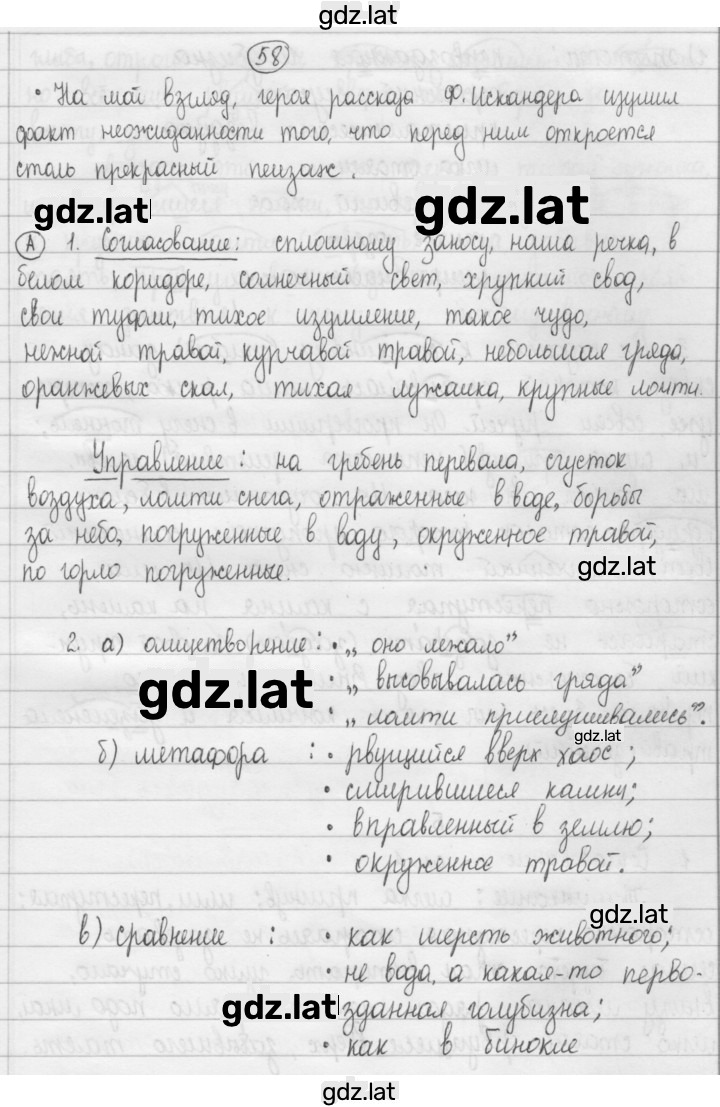 gdz.lat
58
• На мой взгляд, героя рассказа Ф. Искандера изумил
факт неожиданности того, что перед ним откроется
столь прекрасный пейзаж.
gdz.lat
gdz.lat
А 1. Согласование: сплошному заносу, наша речка, в
белом коридоре, солнечный свет, хрупкий свод,
свои туфли, тихое изумление, такое чудо,
нежной травой, курчавой травой, небольшая гряда,
оранжевых скал, тихая лужайка, крупные ломти.
Управление: на гребень перевала, сгусток
воздуха, ломти снега, отраженные в воде, борьбы
за небо, погруженные в воду, окруженное травой,
по горло погруженные.
gdz.lat
2. а) олицетворение: • „оно лежало”
• „высовывалась гряда”
gdz.lat
• „ломти прислушивались”.
gdz.lat
б) метафора : • рвущийся вверх хаос;
• смирившиеся камни;
• вправленный в землю;
• окруженное травой.
gdz.lat
в) сравнение : • как шерсть животного;
• не вода, а какая-то перво-
зданная голубизна;
gdz.lat
gdz.lat
• как в бинокле
gdz.lat